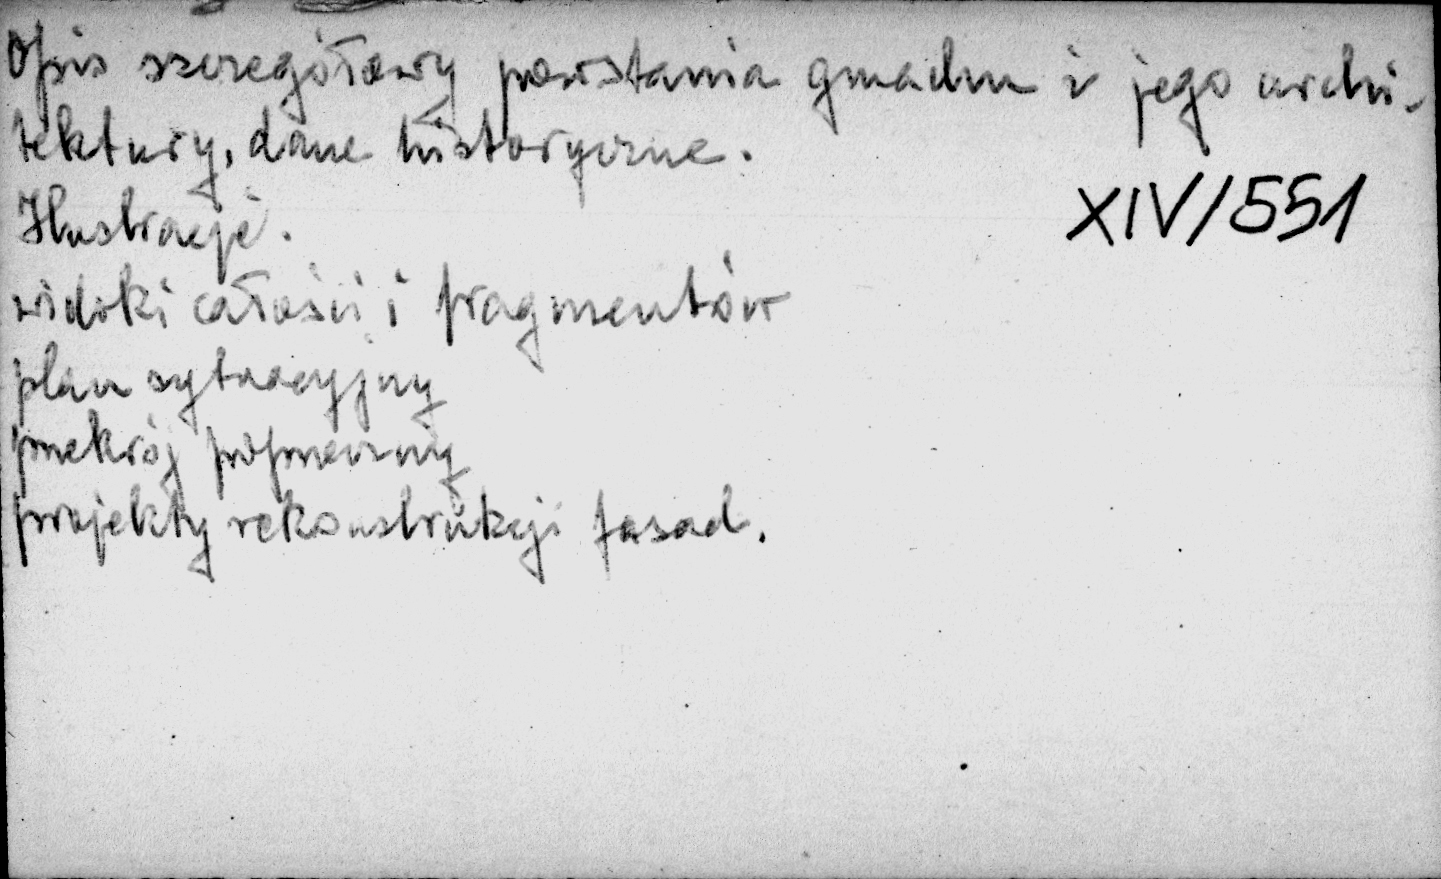 Opis szczegółowy powstania gmachu i jego archi-
tektury, dane historyczne.
XIV/551
Ilustracje.
widoki całości i fragmentów
plan sytuacyjny
przekrój poprzeczny
projekty rekonstrukcji fasad.